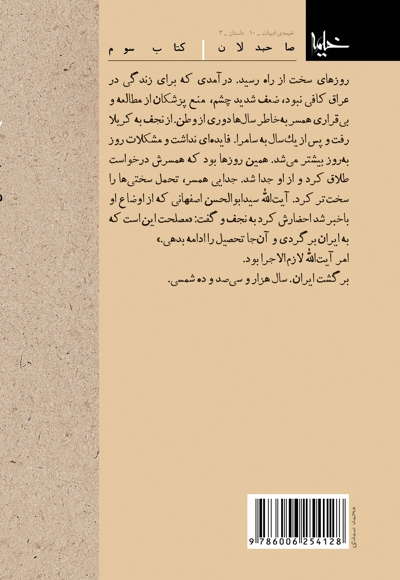 خیمه‌ی ادبیات _ ۱۰ داستان _ ۳
خیما
صاحبدلان | کتاب سوم
روزهای سخت از راه رسید. درآمدی که برای زندگی در
عراق کافی نبود، ضعف شدید چشم، منع پزشکان از مطالعه و
بی‌قراری همسر به‌خاطر سال‌ها دوری از وطن. از نجف به کربلا
رفت و پس از یک‌سال به سامرا. فایده‌ای نداشت و مشکلات روز
به‌روز بیشتر می‌شد. همین روزها بود که همسرش درخواست
طلاق کرد و از او جدا شد. جدایی همسر، تحمل سختی‌ها را
سخت‌تر کرد. آیت‌الله سیدابوالحسن اصفهانی که از اوضاع او
باخبر شد احضارش کرد به نجف و گفت: «مصلحت این است که
به ایران برگردی و آن‌جا تحصیل را ادامه بدهی.»
امر آیت‌الله لازم‌الاجرا بود.
برگشت ایران. سال هزار و سی‌صد و ده شمسی.
محمد صمدی
9 786006 254128